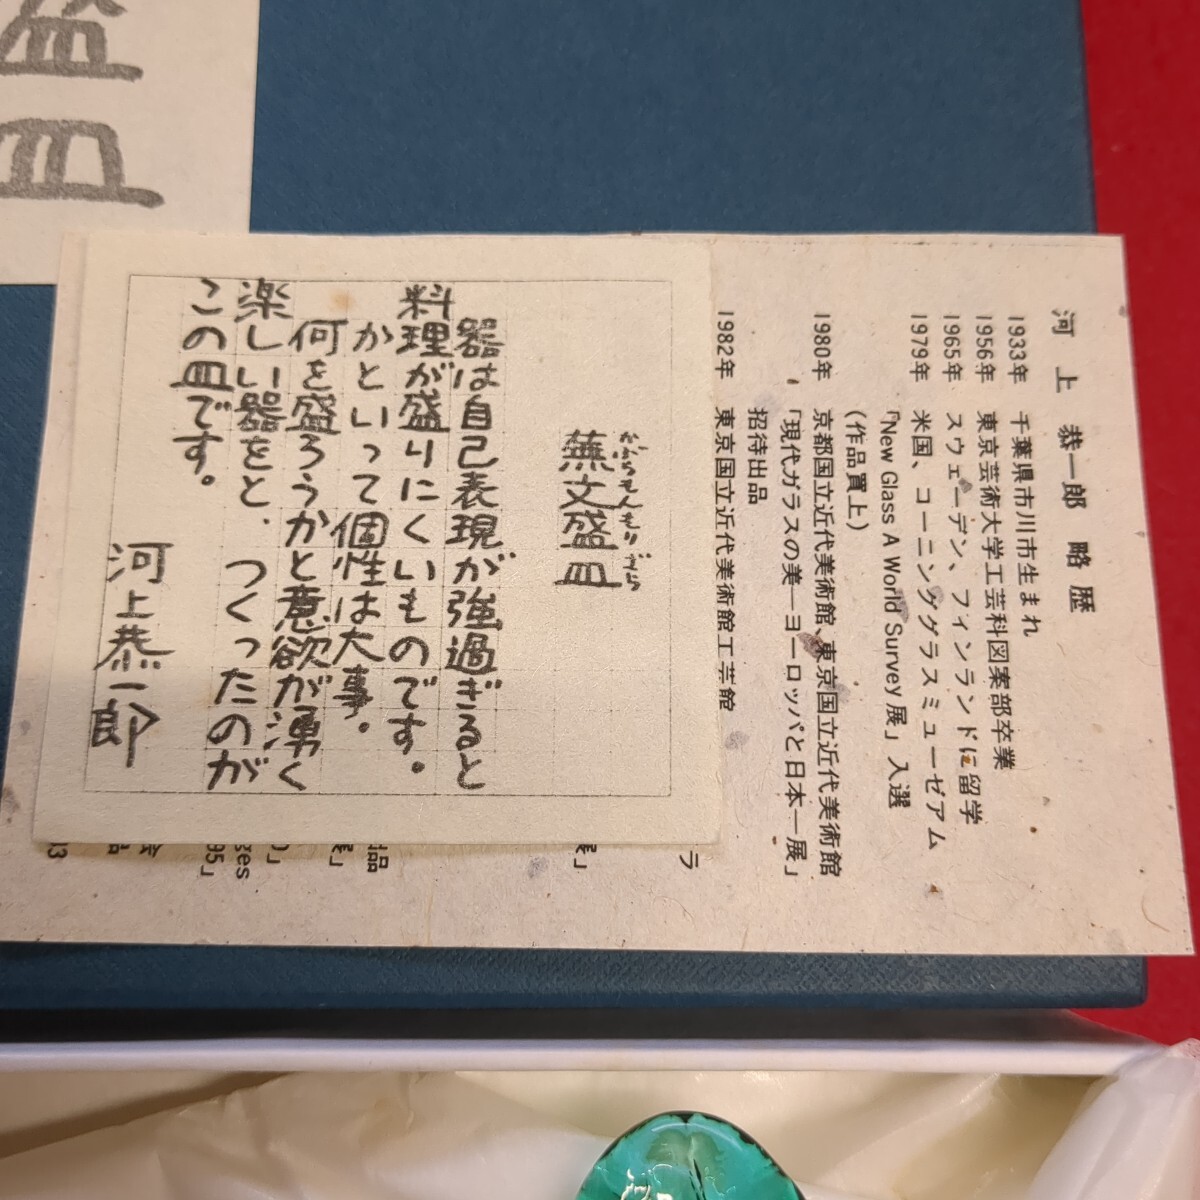 盛
皿
河上 恭一郎 略歴
1933年 千葉県市川市生まれ
1956年 東京芸術大学工芸科図案部卒業
1965年 スウェーデン、フィンランドに留学
1979年 米国、コーニンググラスミューゼアム
「New Glass A World Survey 展」入選
(作品買上)
1980年 京都国立近代美術館、東京国立近代美術館
「現代ガラスの美―ヨーロッパと日本―展」
招待出品
1982年 東京国立近代美術館工芸館
ラ
展」
品
展」
ges
95」
かぶらもんもりざら
蕪文盛皿
器は自己表現が強過ぎると
料理が盛りにくいものです。
かといって個性は大事。
何を盛ろうかと意欲が湧く
楽しい器をと、つくったのが
この皿です。
河上恭一郎